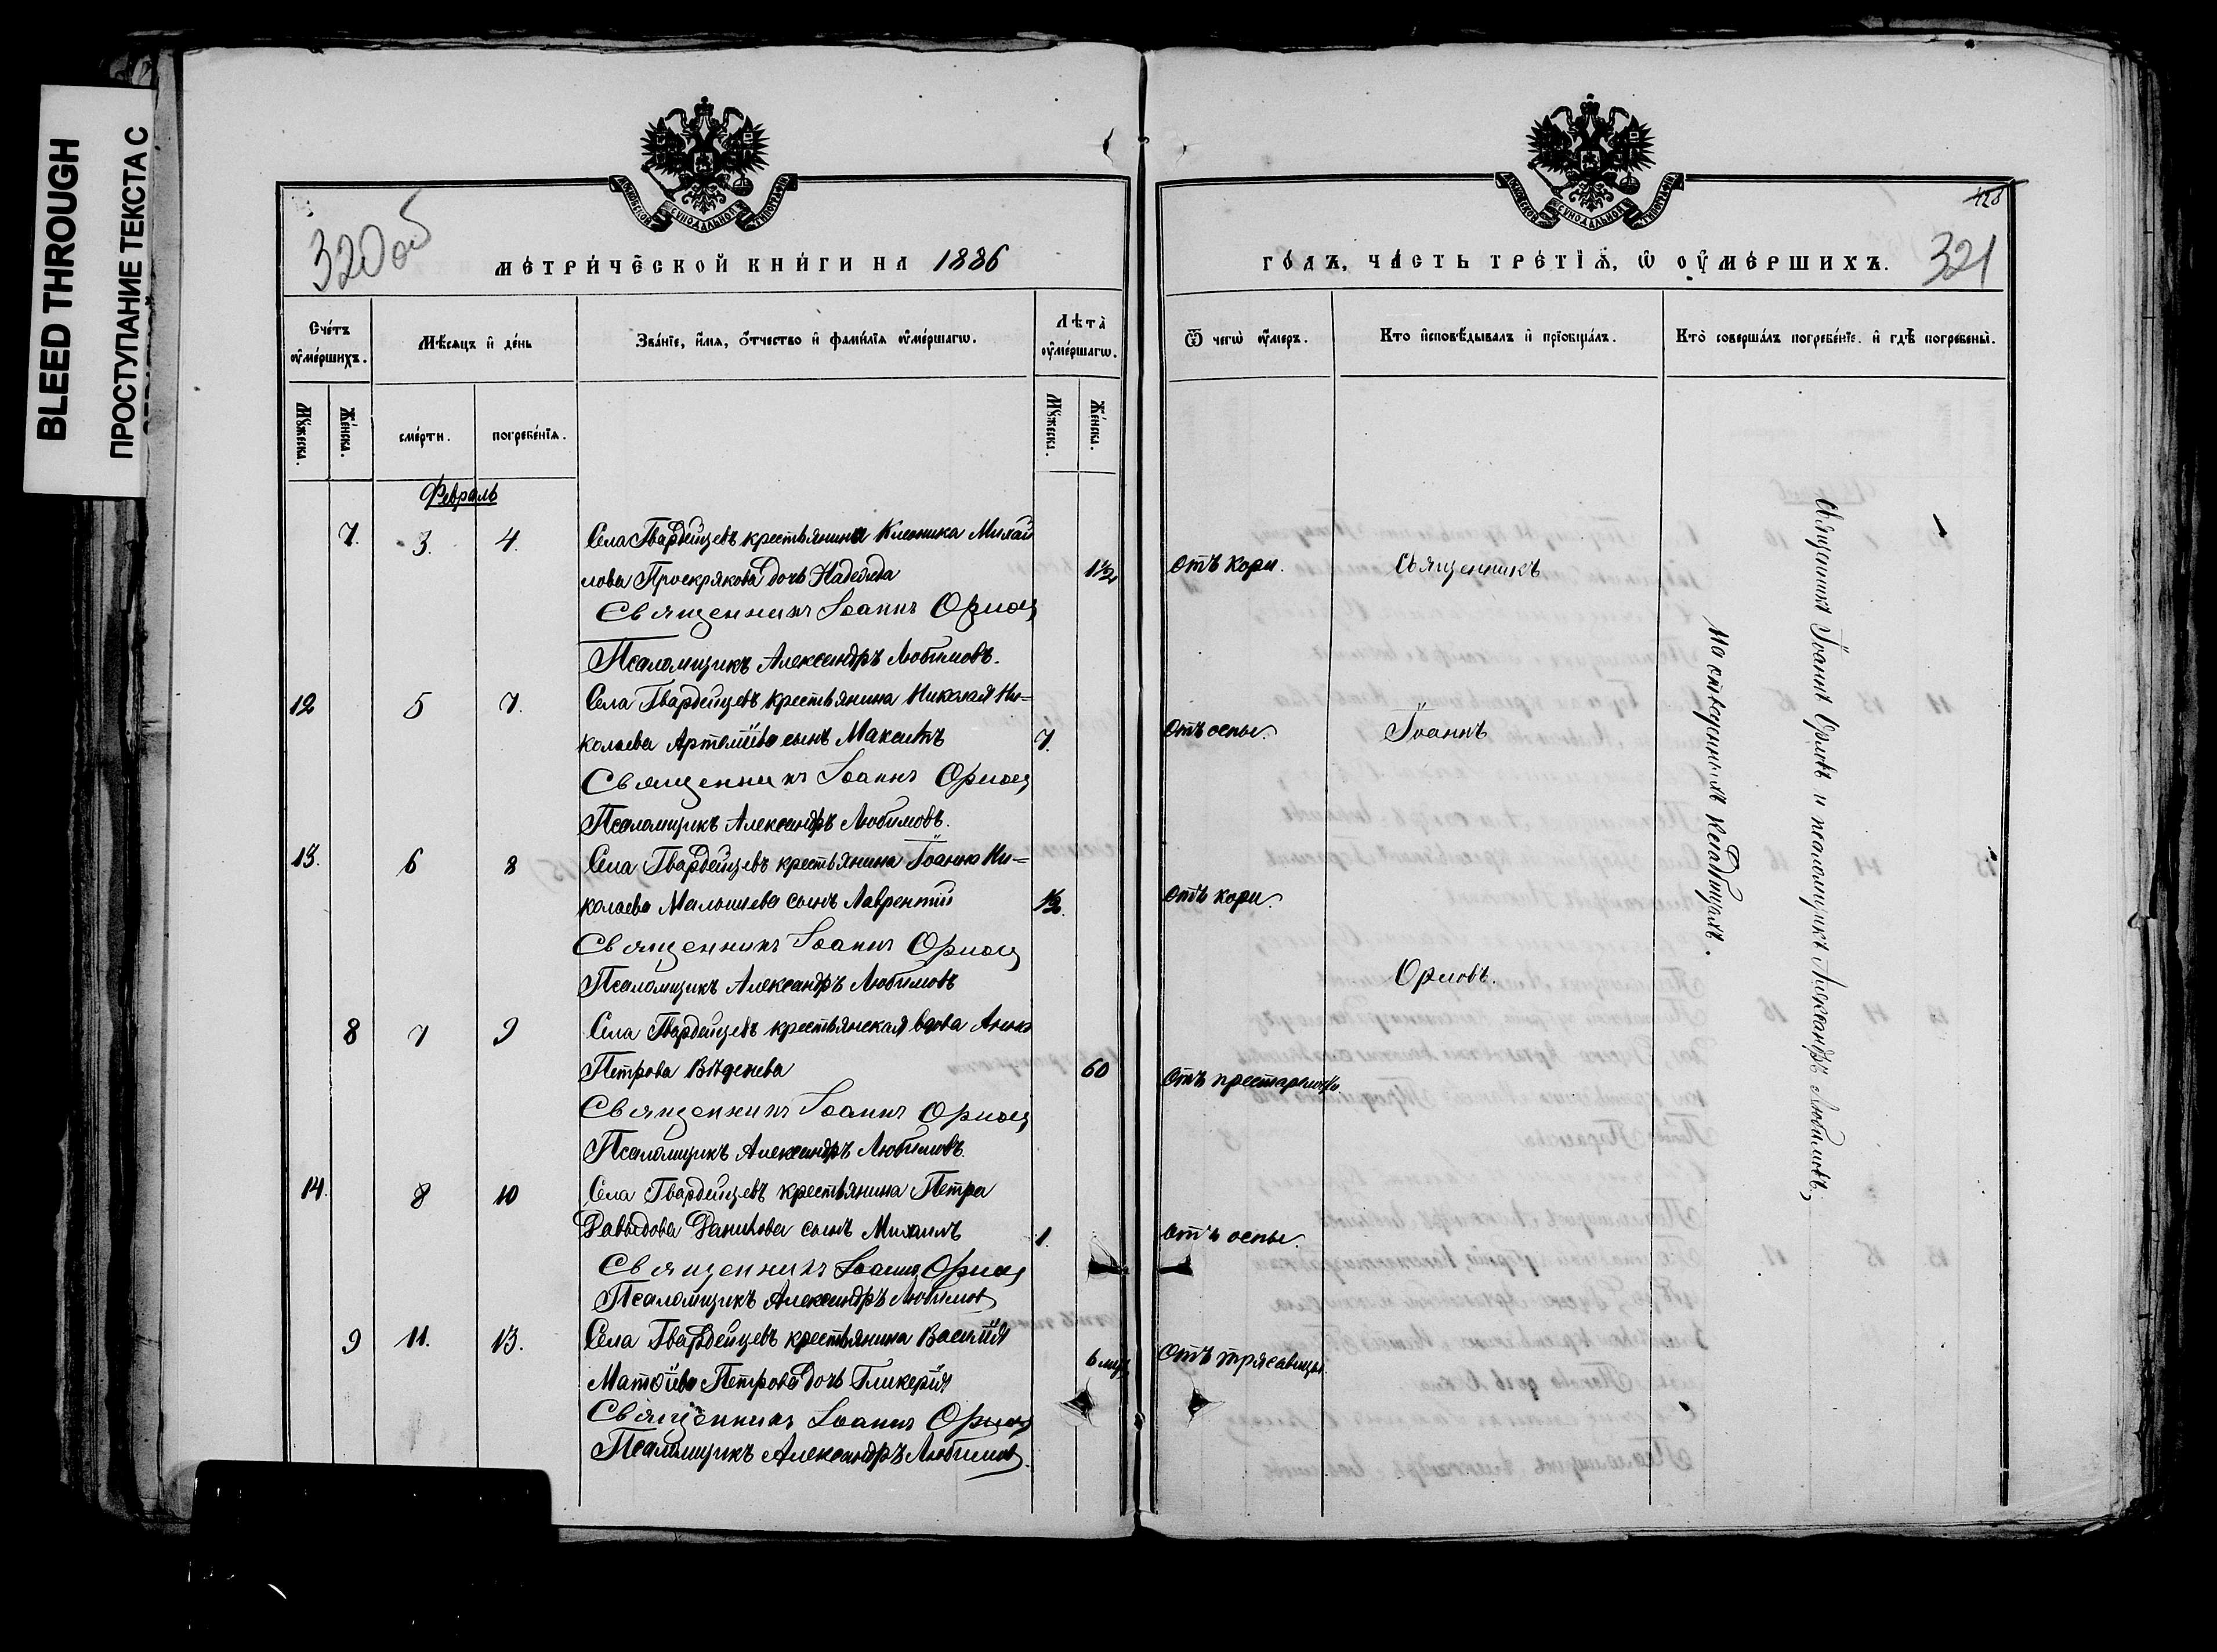 BLEED THROUGH
ПРОСТУПАНИЕ ТЕКСТА С
МОСКОВСКОЙ СУНОДАЛЬНОЙ ТИПОГРАФІИ
320 об
МЕТРИЧЕСКОЙ КНИГИ НА 1886
Счетъ оумершихъ.
Мѣсяцъ и день
Званіе, имя, отчество и фамилія оумершагѡ.
Лѣта оумершагѡ.
Мужеска.
Женска.
смерти.
погребенія.
Мужеска.
Женска.
Февраль
7. 3. 4. Села Гвардейцевъ крестьянина Михай
лова Проскрякова дочь Надежда 1 1/2
Священникъ Іоаннъ Орловъ
Псаломщикъ Александръ Любимовъ.
12 5 7. Села Гвардейцевъ крестьянина Николая Ни=
колаева сынъ Максимъ 7.
Священникъ Іоаннъ Орловъ
Псаломщикъ Александръ Любимовъ.
13. 6 8 Села Гвардейцевъ крестьянина Іоанна Ни=
колаева Малышева сынъ Лаврентій 1/2.
Священникъ Іоаннъ Орловъ
Псаломщикъ Александръ Любимовъ
8 7 9 Села Гвардейцевъ крестьянская вдова Анна
Петрова 60
Священникъ Іоаннъ Орловъ
Псаломщикъ Александръ Любимовъ.
14. 8 10 Села Гвардейцевъ крестьянина Петра
Давыдова Данилова сынъ Михаилъ 1.
Священникъ Іоаннъ Орловъ
Псаломщикъ Александръ Любимовъ
9 11. 13. Села Гвардейцевъ крестьянина Василія
Матѳіева Петрова дочь Гликерія 6 мѣс
Священникъ Іоаннъ Орловъ
Псаломщикъ Александръ Любимовъ.
МОСКОВСКОЙ СУНОДАЛЬНОЙ ТИПОГРАФІИ
321
ГОДЪ, ЧАСТЬ ТРЕТІЯ, Ѡ ОУМЕРШИХЪ.
Ѿ чегѡ оумеръ.
Кто исповѣдывалъ и пріобщалъ.
Кто совершалъ погребеніе. и гдѣ погребены.
отъ кори.
отъ оспы.
отъ кори.
отъ престарелости.
отъ оспы.
отъ трясавицы.
Священникъ
Іоаннъ
Орловъ.
На отведенныхъ кладбищахъ.
Священникъ Іоаннъ Орловъ и псаломщикъ Александръ Любимовъ.